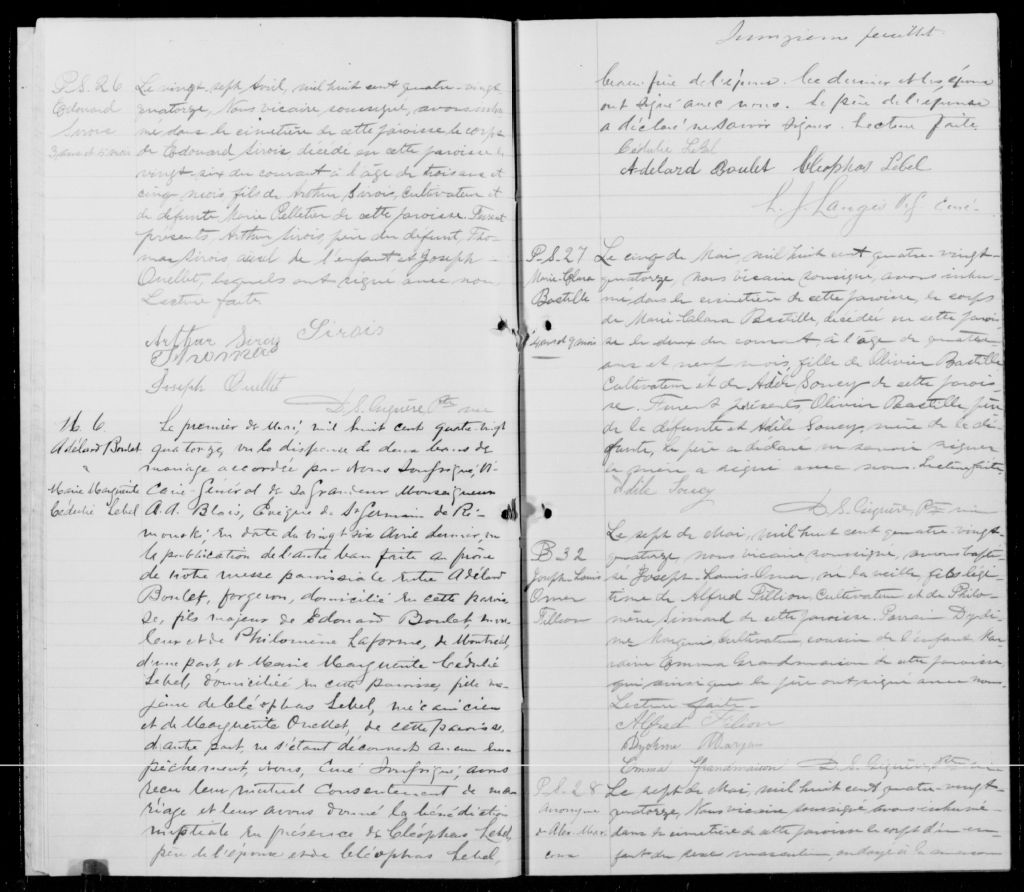 P.S. 26
Edouard
Sirois
3 ans et 5 mois
Le vingt-sept Avril, mil huit cent quatre-vingt
quatorze, Nous vicaire soussigné, avons inhu
mé dans le cimetière de cette paroisse le corps
de Edouard Sirois, décédé en cette paroisse le
vingt-six du courant à l'âge de trois ans et
cinq mois fils de Arthur Sirois, Cultivateur et
de défunte Marie Pelletier de cette paroisse. Furent
présents, Arthur Sirois, père du défunt, Tho-
mas Sirois aïeul de l'enfant et Joseph
Ouellet, lesquels ont signé avec nous
Lecture faite
Arthur Sirois
Thomas Sirois
Joseph Ouellet
D. S. Ptre vic
M. 6.
Adélard Boulet
"
Marie Marguerite
Cédulie Lebel
Le premier de Mai, mil huit cent quatre-vingt
quatorze, vu la dispense de deux bans de
mariage accordée par Nous soussigné, Vi-
caire-Général de Sa Grandeur Monseigneur
A. A. Blais, Evêque de St Germain de Ri-
mouski, en date du vingt six Avril dernier, vu
la publication de l'autre ban faite au prône
de notre messe paroissiale entre Adélard
Boulet, forgeron, domicilié en cette parois
se, fils majeur de Edouard Boulet,
et de Philomène Laforme, de Montréal,
d'une part, et Marie Marguerite Cédulie
Lebel, domiciliée en cette paroisse, fille ma-
jeure de Cléophas Lebel, mécanicien
et de Marguerite Ouellet, de cette paroisse
d'autre part, ne s'étant découvert aucun em-
pêchement, Nous, Curé soussigné, avons
reçu leur mutuel consentement de ma-
riage et leur avons donné la bénédiction
nuptiale en présence de Cléophas Lebel,
père de l'épouse et de Cléophas Lebel,
feuillet
beau-frère de l'épouse. Ce dernier et les époux
ont signé avec nous. Le père de l'épouse
a déclaré ne savoir signer. Lecture faite
Cédulie Lebel
Adelard Boulet Cléophas Lebel
L. J. Langis V.G. Curé
P.S. 27
Marie-Clara
Bastille
4 ans et 9 mois
Le cinq de Mai, mil huit cent quatre-vingt-
quatorze, Nous vicaire soussigné, avons inhu-
mé, dans le cimetière de cette paroisse, le corps
de Marie-Clara Bastille, décédée en cette parois-
se le deux du courant, à l'âge de quatre
ans et neuf mois, fille de Olivier Bastille
Cultivateur et de Adèle Soucy de cette parois-
se. Furent présents, Olivier Bastille, père
de la défunte et Adèle Soucy, mère de la dé-
funte, le père a déclaré ne savoir signer
la mère a signé avec nous. Lecture faite
Adèle Soucy
D. S. Ptre vic
B. 32
Joseph-Louis
Omer
Fillion
Le sept de Mai, mil huit cent quatre-vingt-
quatorze, nous vicaire soussigné, avons bapti-
sé Joseph-Louis-Omer, né la veille, fils légi-
time de Alfred Fillion Cultivateur et de Philo-
mène Simard de cette paroisse. Parrain
cultivateur, cousin de l'enfant, Mar-
raine Emma Grandmaison de cette paroisse
qui, ainsi que le père ont signé avec nous
Lecture faite
Alfred Filion
Emma Grandmaison D. S. Ptre vic
P.S. 28
Anonyme
de Alex.
Le sept de Mai, mil huit cent quatre-vingt-
quatorze, Nous vicaire soussigné avons inhumé
dans le cimetière de cette paroisse le corps d'un en-
fant du sexe masculin, ondoyé à la maison